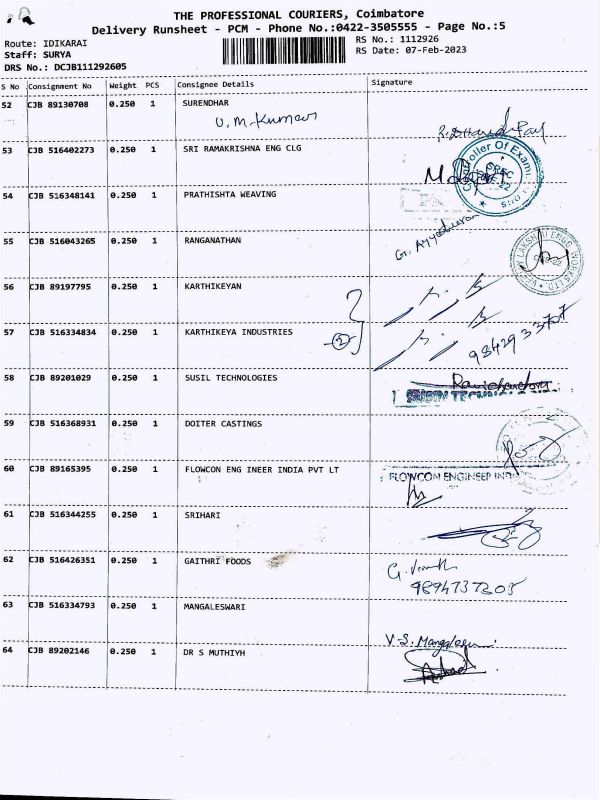 THE PROFESSIONAL COURIERS, Coimbatore
Delivery Runsheet - PCM - Phone No.:0422-3505555 - Page No.:5
Route: IDIKARAI
Staff: SURYA
DRS No.: DCJB111292605
RS No.: 1112926
RS Date: 07-Feb-2023
S No Consignment No Weight PCS Consignee Details Signature
52 CJB 89130708 0.250 1 SURENDHAR
U.M.Kumar
53 CJB 516402273 0.250 1 SRI RAMAKRISHNA ENG CLG
54 CJB 516348141 0.250 1 PRATHISHTA WEAVING
55 CJB 516043265 0.250 1 RANGANATHAN
56 CJB 89197795 0.250 1 KARTHIKEYAN
57 CJB 516334834 0.250 1 KARTHIKEYA INDUSTRIES
2
58 CJB 89201029 0.250 1 SUSIL TECHNOLOGIES
59 CJB 516368931 0.250 1 DOITER CASTINGS
60 CJB 89165395 0.250 1 FLOWCON ENG INEER INDIA PVT LT
FLOWCON ENGINEER
61 CJB 516344255 0.250 1 SRIHARI
62 CJB 516426351 0.250 1 GAITHRI FOODS
63 CJB 516334793 0.250 1 MANGALESWARI
64 CJB 89202146 0.250 1 DR S MUTHIYH